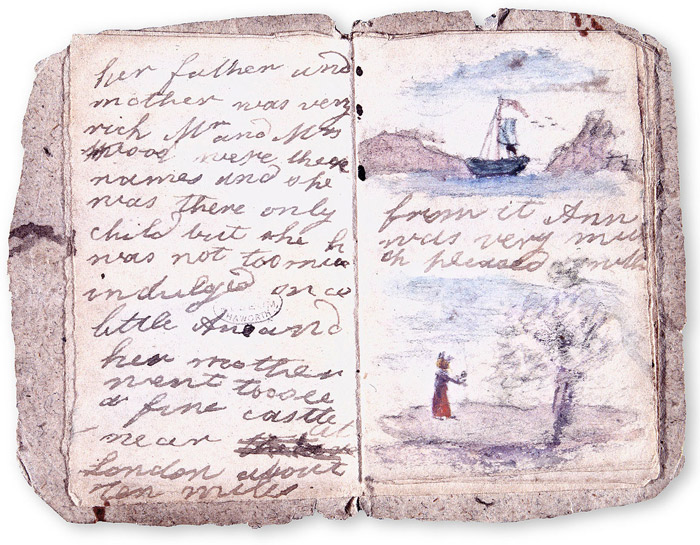 her father and
mother was very
rich Mr and Mrs
Wood were there
names and she
was there only
child but she h
was not too muc
indulged once
little Ane and
her mother
went to see
a fine castle
near
London about
Ten miles
from it Ann
was very mu
ch pleased with
HAWORTH